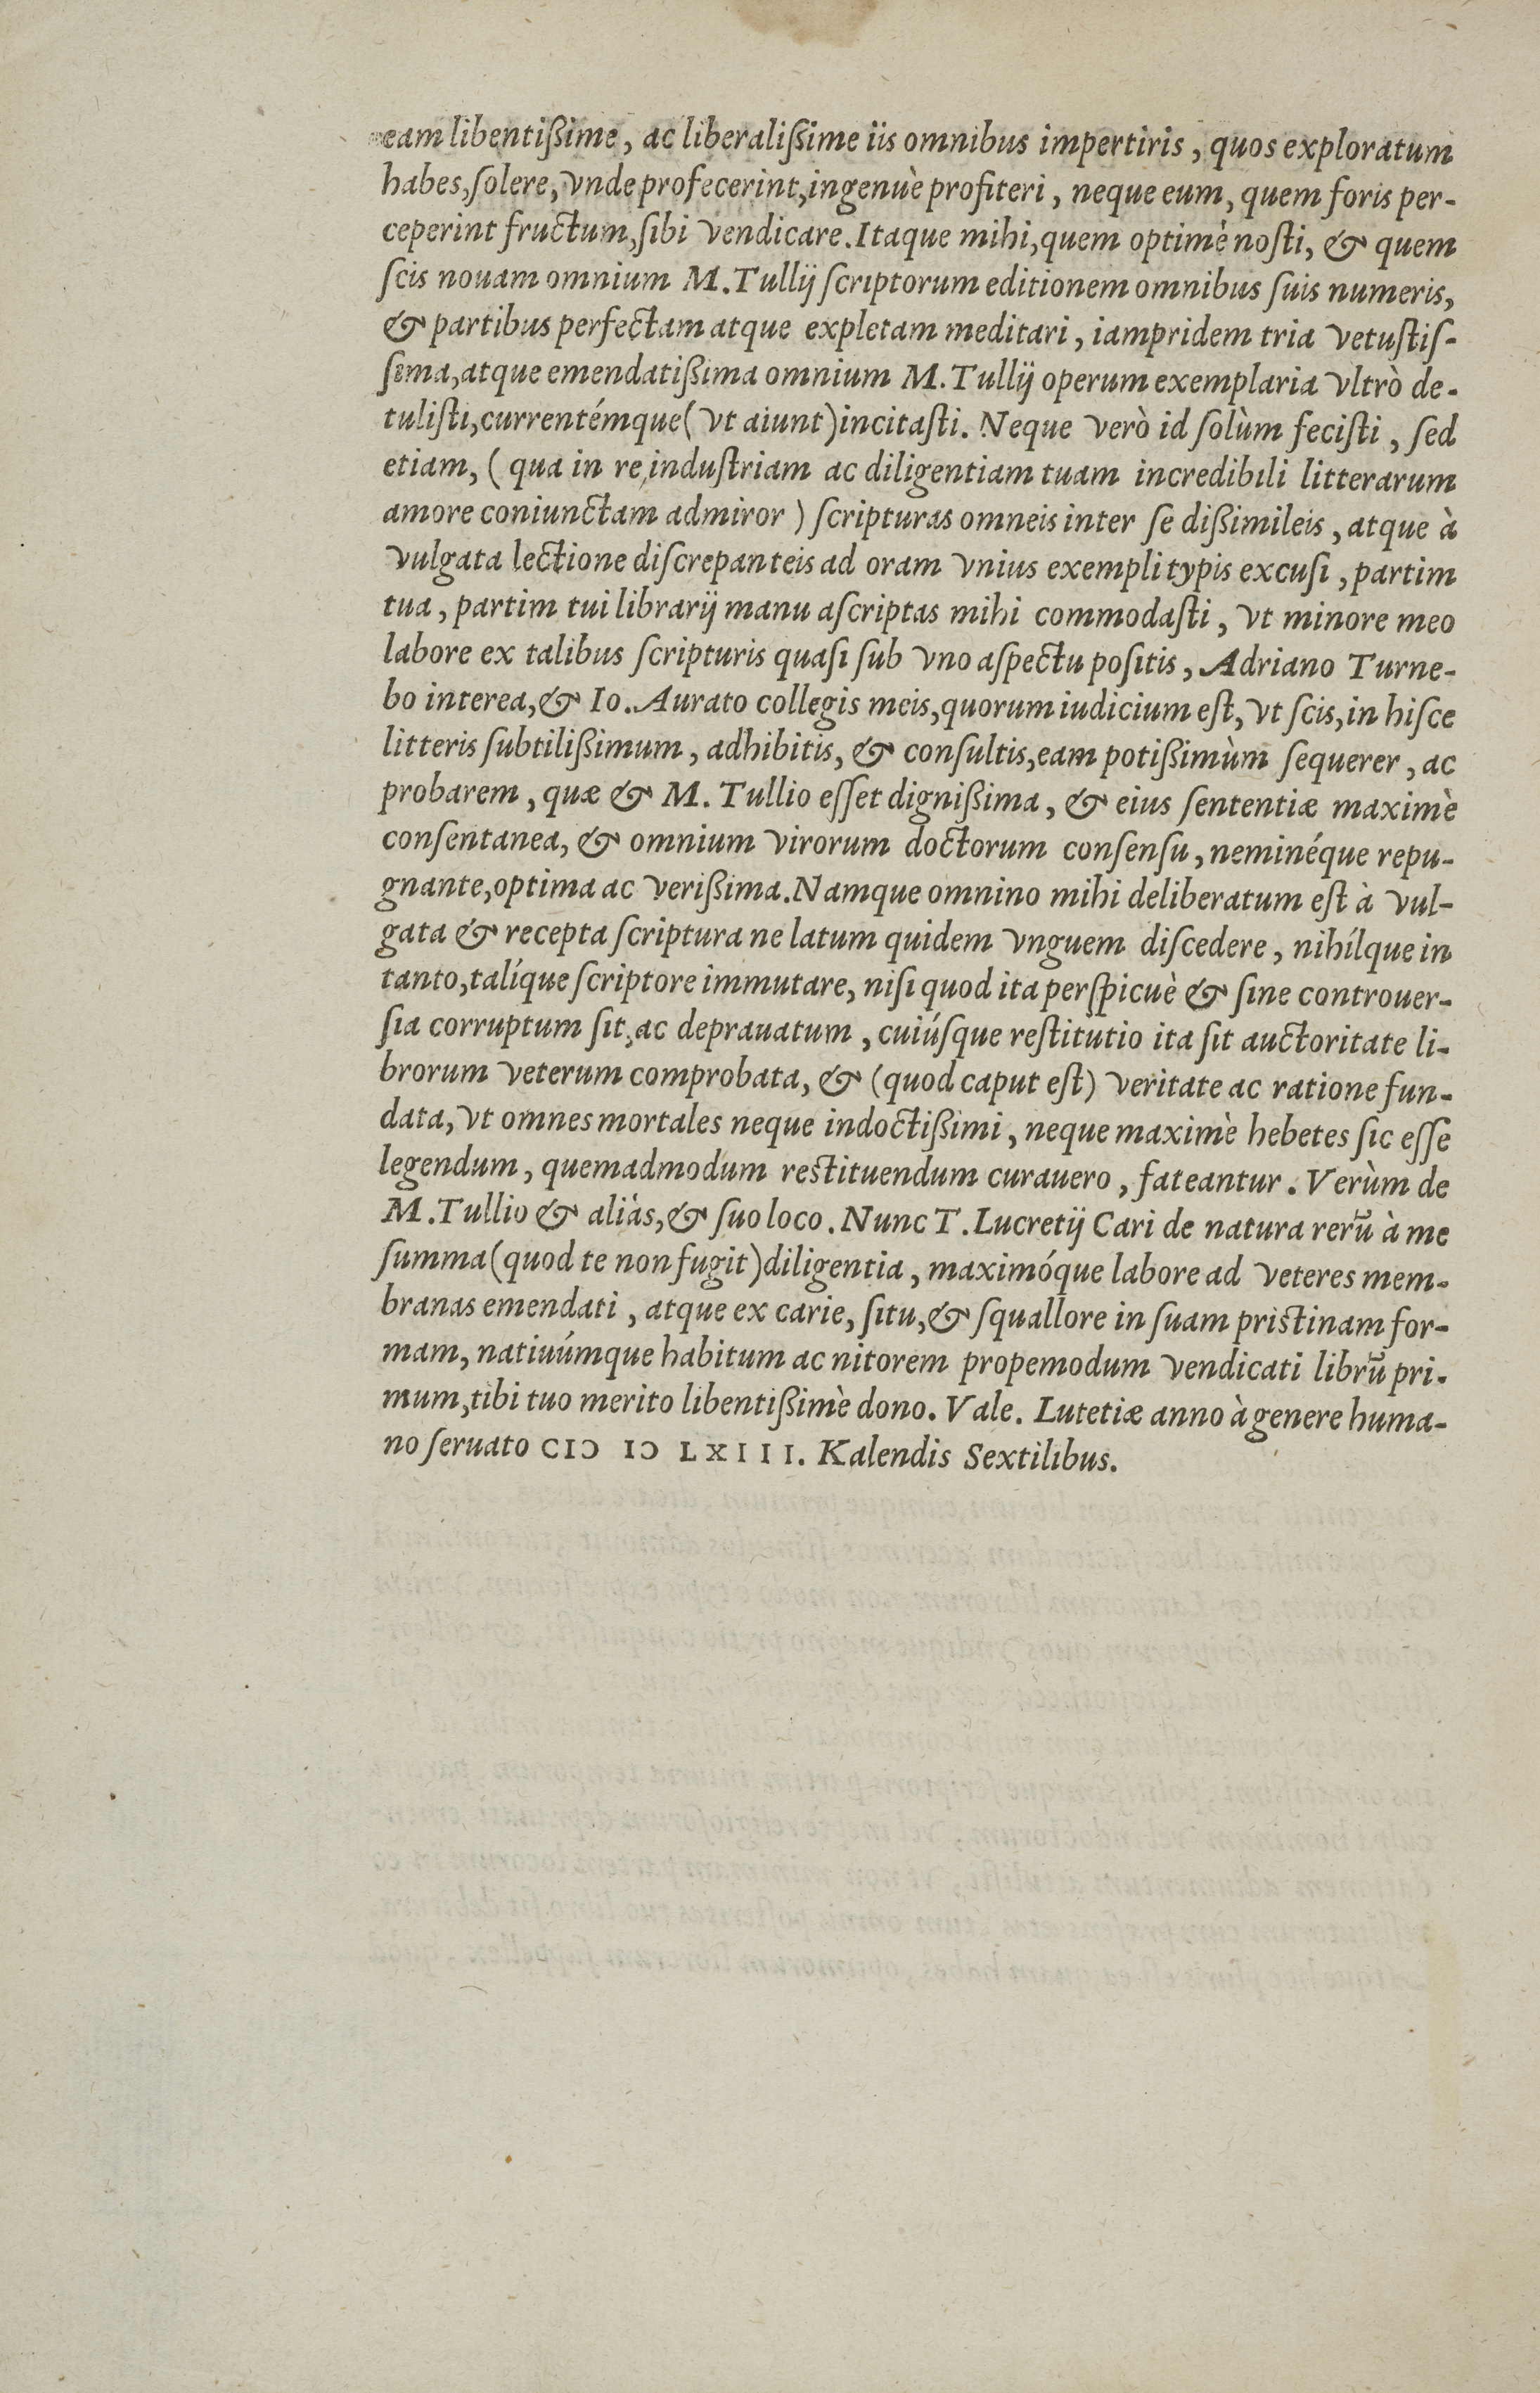 eam libentißime, ac liberalißime iis omnibus impertiris, quos exploratum
habes, ſolere, vnde profecerint, ingenuè profiteri, neque eum, quem foris per-
ceperint fructum, ſibi vendicare. Itaque mihi, quem optimè noſti, & quem
ſcis nouam omnium M. Tullij ſcriptorum editionem omnibus ſuis numeris,
& partibus perfectam atque expletam meditari, iampridem tria vetuſtiſ-
ſima, atque emendatißima omnium M. Tullij operum exemplaria vltrò de-
tuliſti, currentémque (vt aiunt) incitaſti. Neque verò id ſolùm feciſti, ſed
etiam, (qua in re, induſtriam ac diligentiam tuam incredibili litterarum
amore coniunctam admiror) ſcripturas omneis inter ſe dißimileis, atque à
vulgata lectione diſcrepanteis ad oram vnius exempli typis excuſi, partim
tua, partim tui librarij manu aſcriptas mihi commodaſti, vt minore meo
labore ex talibus ſcripturis quaſi ſub vno aſpectu poſitis, Adriano Turne-
bo interea, & Io. Aurato collegis meis, quorum iudicium eſt, vt ſcis, in hiſce
litteris ſubtilißimum, adhibitis, & conſultis, eam potißimùm ſequerer, ac
probarem, quæ & M. Tullio eſſet dignißima, & eius ſententiæ maximè
conſentanea, & omnium virorum doctorum conſenſu, neminéque repu-
gnante, optima ac verißima. Namque omnino mihi deliberatum eſt à vul-
gata & recepta ſcriptura ne latum quidem vnguem diſcedere, nihílque in
tanto, talíque ſcriptore immutare, niſi quod ita perſpicuè & ſine controuer-
ſia corruptum ſit, ac deprauatum, cuiúſque reſtitutio ita ſit auctoritate li-
brorum veterum comprobata, & (quod caput eſt) veritate ac ratione fun-
data, vt omnes mortales neque indoctißimi, neque maximè hebetes ſic eſſe
legendum, quemadmodum reſtituendum curauero, fateantur. Verùm de
M. Tullio & aliàs, & ſuo loco. Nunc T. Lucretij Cari de natura rerū à me
ſumma (quod te non fugit) diligentia, maximóque labore ad veteres mem-
branas emendati, atque ex carie, ſitu, & ſquallore in ſuam priſtinam for-
mam, natiuúmque habitum ac nitorem propemodum vendicati librū pri-
mum, tibi tuo merito libentißimè dono. Vale. Lutetiæ anno à genere huma-
no ſeruato CIↃ IↃ LXIII. Kalendis Sextilibus.